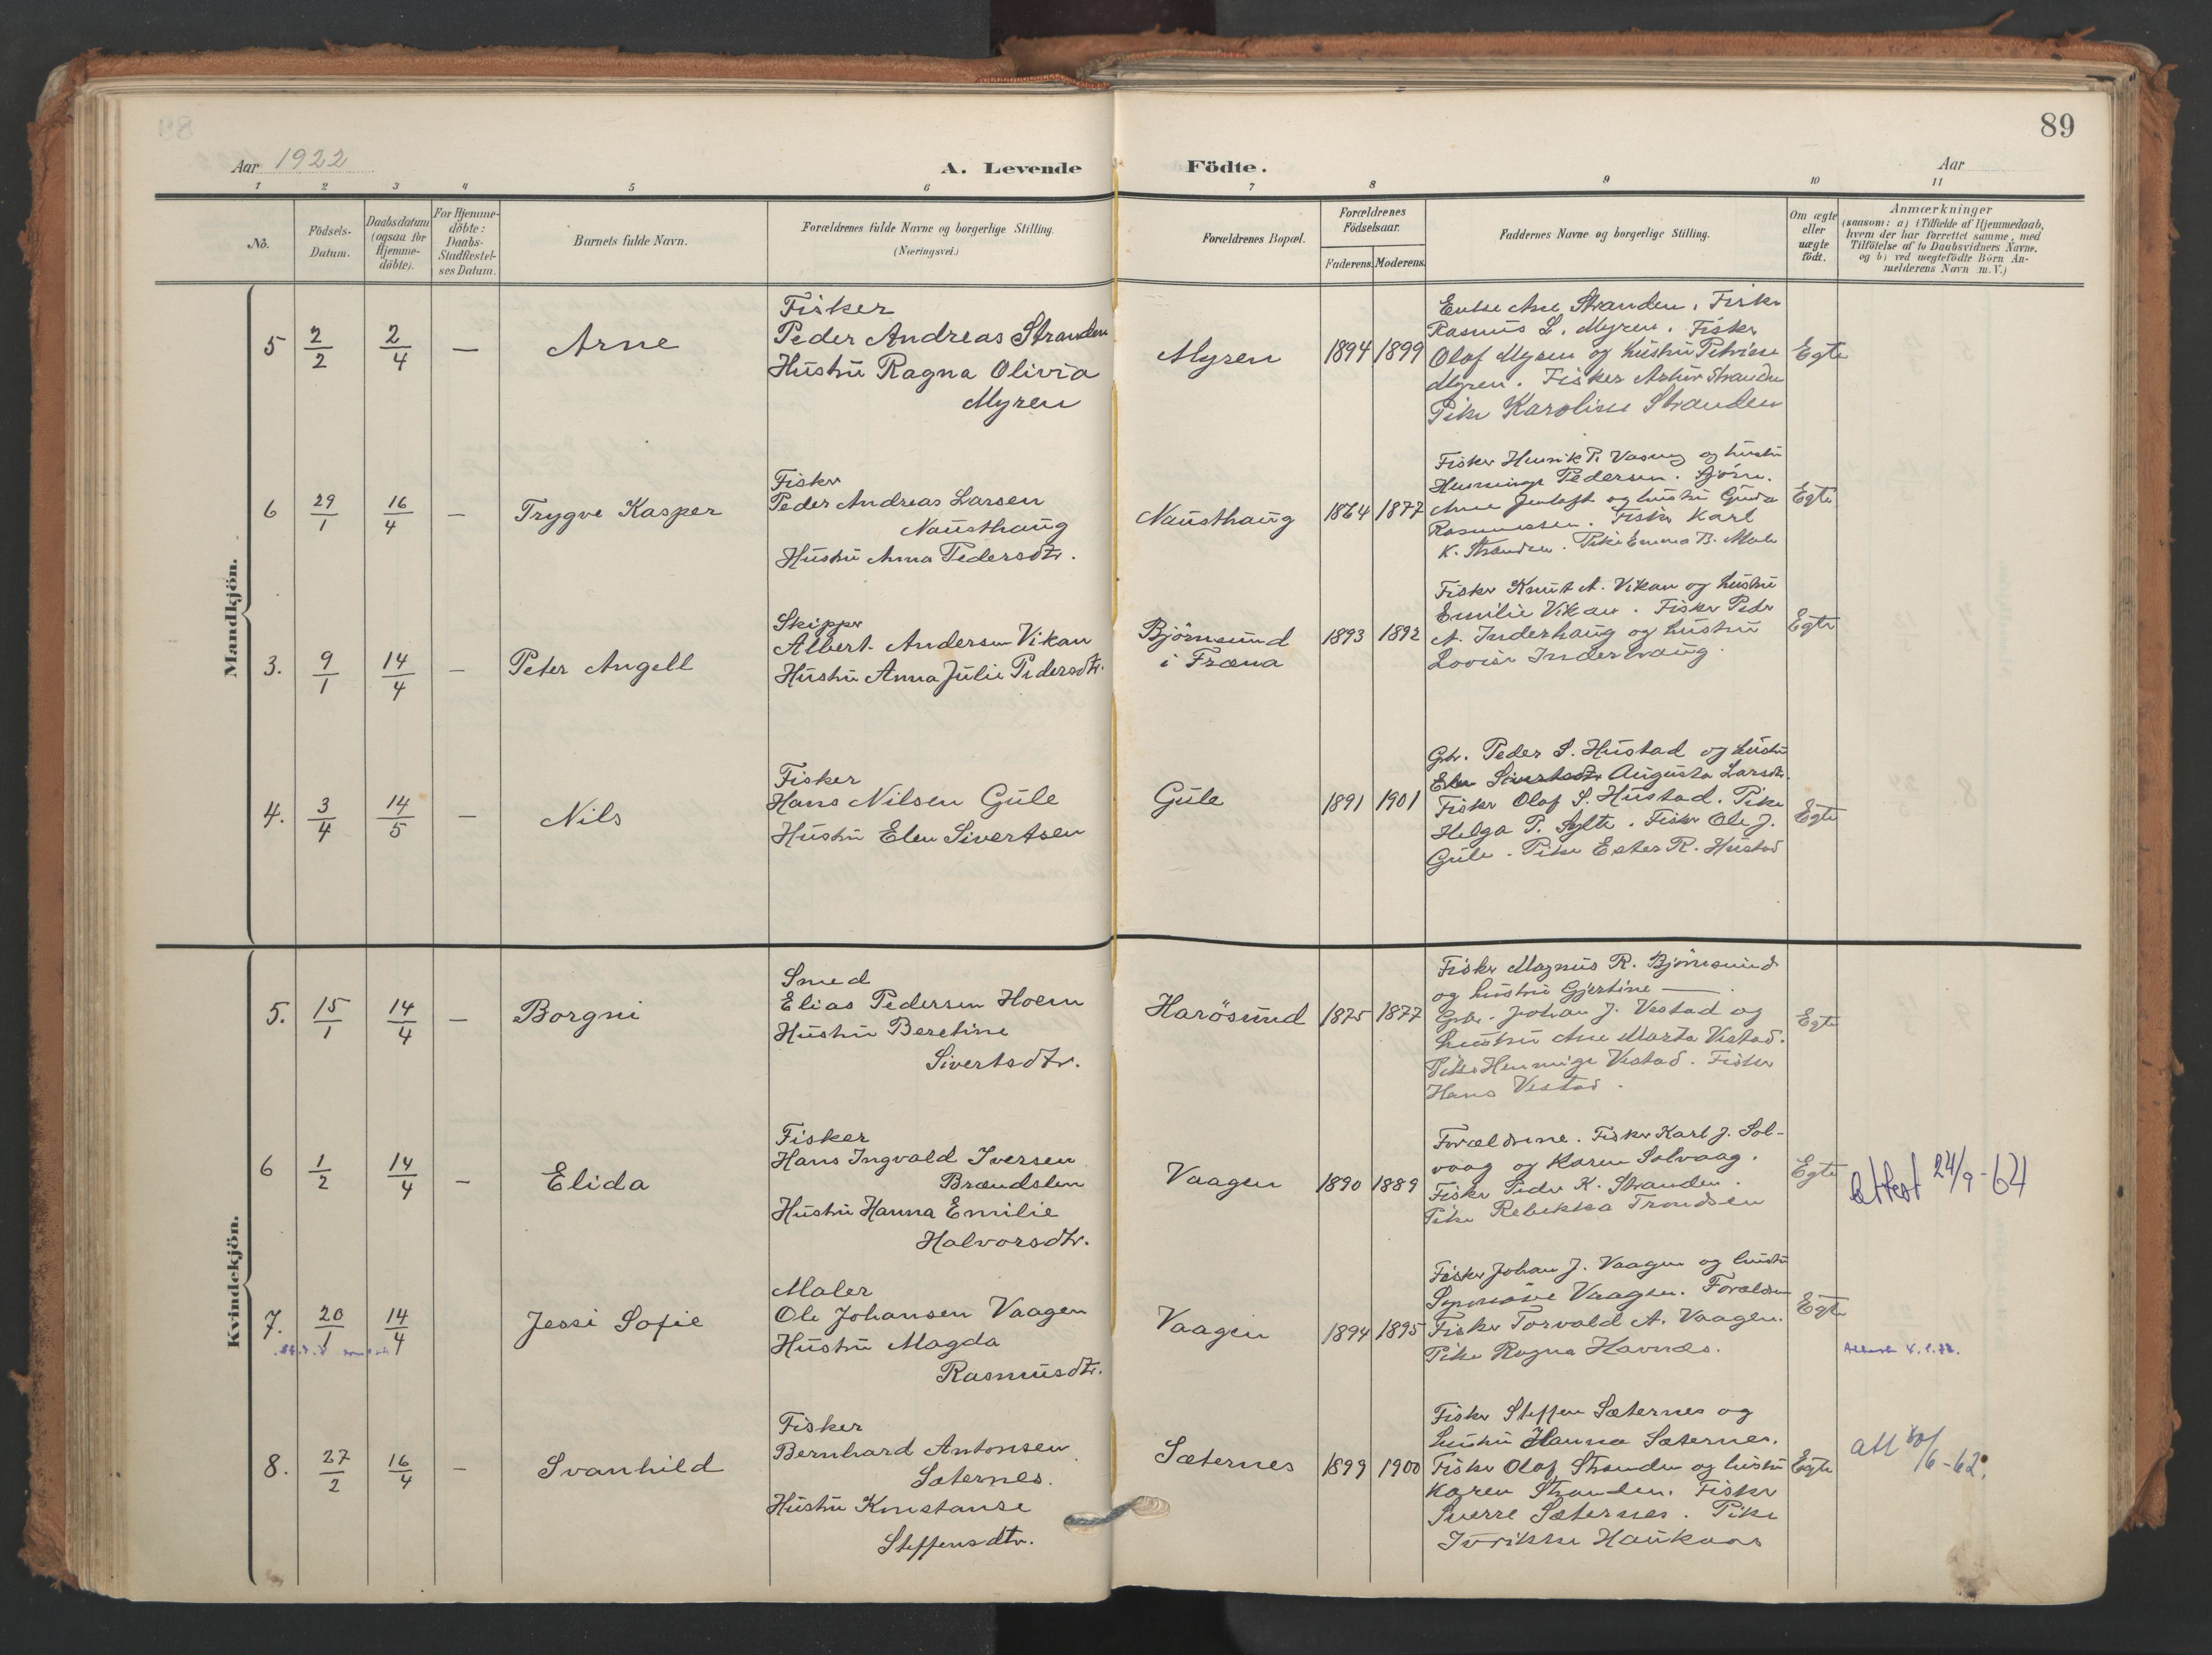 89
Aar 1922
A. Levende Födte.
Aar
1 2 3 4 5 6 7 8 9 10 11
No.
Födsels-
Datum.
Daabsdatum
(ogsaa for
Hjemme-
döbte).
For Hjemme-
döbte:
Daabs-
Stadfæstel-
ses Datum.
Barnets fulde Navn.
Forældrenes fulde Navne og borgerlige Stilling.
(Næringsvei.)
Forældrenes Bopæl.
Forældrenes
Födselsaar.
Faderens. Moderens.
Faddernes Navne og borgerlige Stilling.
Om ægte
eller
uægte
födt.
Anmærkninger
(saasom: a) i Tilfælde af Hjemmedaab,
hvem der har forrettet samme, med
Tilföielse af to Daabsvidners Navne,
og b) ved uægtefödte Börn An-
melderens Navn m. V.)
Mandkjön.
5 2/2 2/4 — Arne
Fisker
Peder Andreas Stranden
Hustru Ragna Olivia
Myren
Myren 1894 1899
Enke Ane Stranden. Fisker
Rasmus L. Myren. Fisker
Olaf Myren og hustru
Myren. Fisker Stranden
Pike Karoline Stranden
Egte
6 29/1 16/4 — Trygve Kasper
Fisker
Peder Andreas Larsen
Nausthaug
Hustru Anna Pedersdtr.
Nausthaug 1864 1877
Fisker Henrik P. og hustru
Pedersen.
og hustru
Rasmussen. Fisker Karl
K. Stranden. Pike Emma B.
Egte
3. 9/1 14/4 — Peter Angell
Skipper
Albert Andersen Vikan
Hustru Anna Julie Pedersdtr.
Björnsund
i Fræna
1893 1892
Fisker Knut A. Vikan og hustru
Emilie Vikan. Fisker Peder
A. Inderhaug og hustru
Lovise Inderhaug.
Egte
4. 3/4 14/5 — Nils
Fisker
Hans Nilsen Gule
Hustru Elen Sivertsen
Gule 1891 1901
Gbr. Peder S. Hustad og hustru
Elen Sivertsdtr Augusta Larsdtr.
Fisker Olaf S. Hustad. Pike
Helga P. Sylte. Fisker Ole J.
Gule. Pike Ester R. Hustad
Egte
Kvindekjön.
5. 15/1 14/4 — Borgni
Smed
Elias Pedersen Hoem
Hustru Beretine
Sivertsdtr.
Harösund 1875 1877
Fisker Magnus R. Björnsund
og hustru Gjertine —
Gbr. Johan J. Vestad og
hustru Ane Marta Vestad.
Pike Henninge Vestad. Fisker
Hans Vestad.
Egte
6 1/2 14/4 — Elida
Fisker
Hans Ingvald Iversen
Brændslen
Hustru Hanna Emilie
Halvorsdtr.
Vaagen 1890 1889
Forældrene. Fisker Karl J. Sol-
vaag og Karen Solvaag.
Fisker Peder K. Stranden.
Pike Rebekka Trondsen
Egte
attest 24/9-64
7. 20/1 14/4 Jessi Sofie
Maler
Ole Johansen Vaagen
Hustru Magda
Rasmusdtr.
Vaagen 1894 1895
Fisker Johan J. Vaagen og hustru
Synnöve Vaagen. Forældrene
Fisker Torvald A. Vaagen.
Pike Ragna Havnæs.
Egte
8. 27/2 16/4 — Svanhild
Fisker
Bernhard Antonsen
Sæternes.
Hustru Konstanse
Steffensdtr.
Sæternes 1899 1900
Fisker Steffen Sæternes og
hustru Hanna Sæternes.
Fisker Olaf Stranden og hustru
Karen Stranden. Fisker
Sverre Sæternes. Pike
Haukaas
Egte
att /6-62.